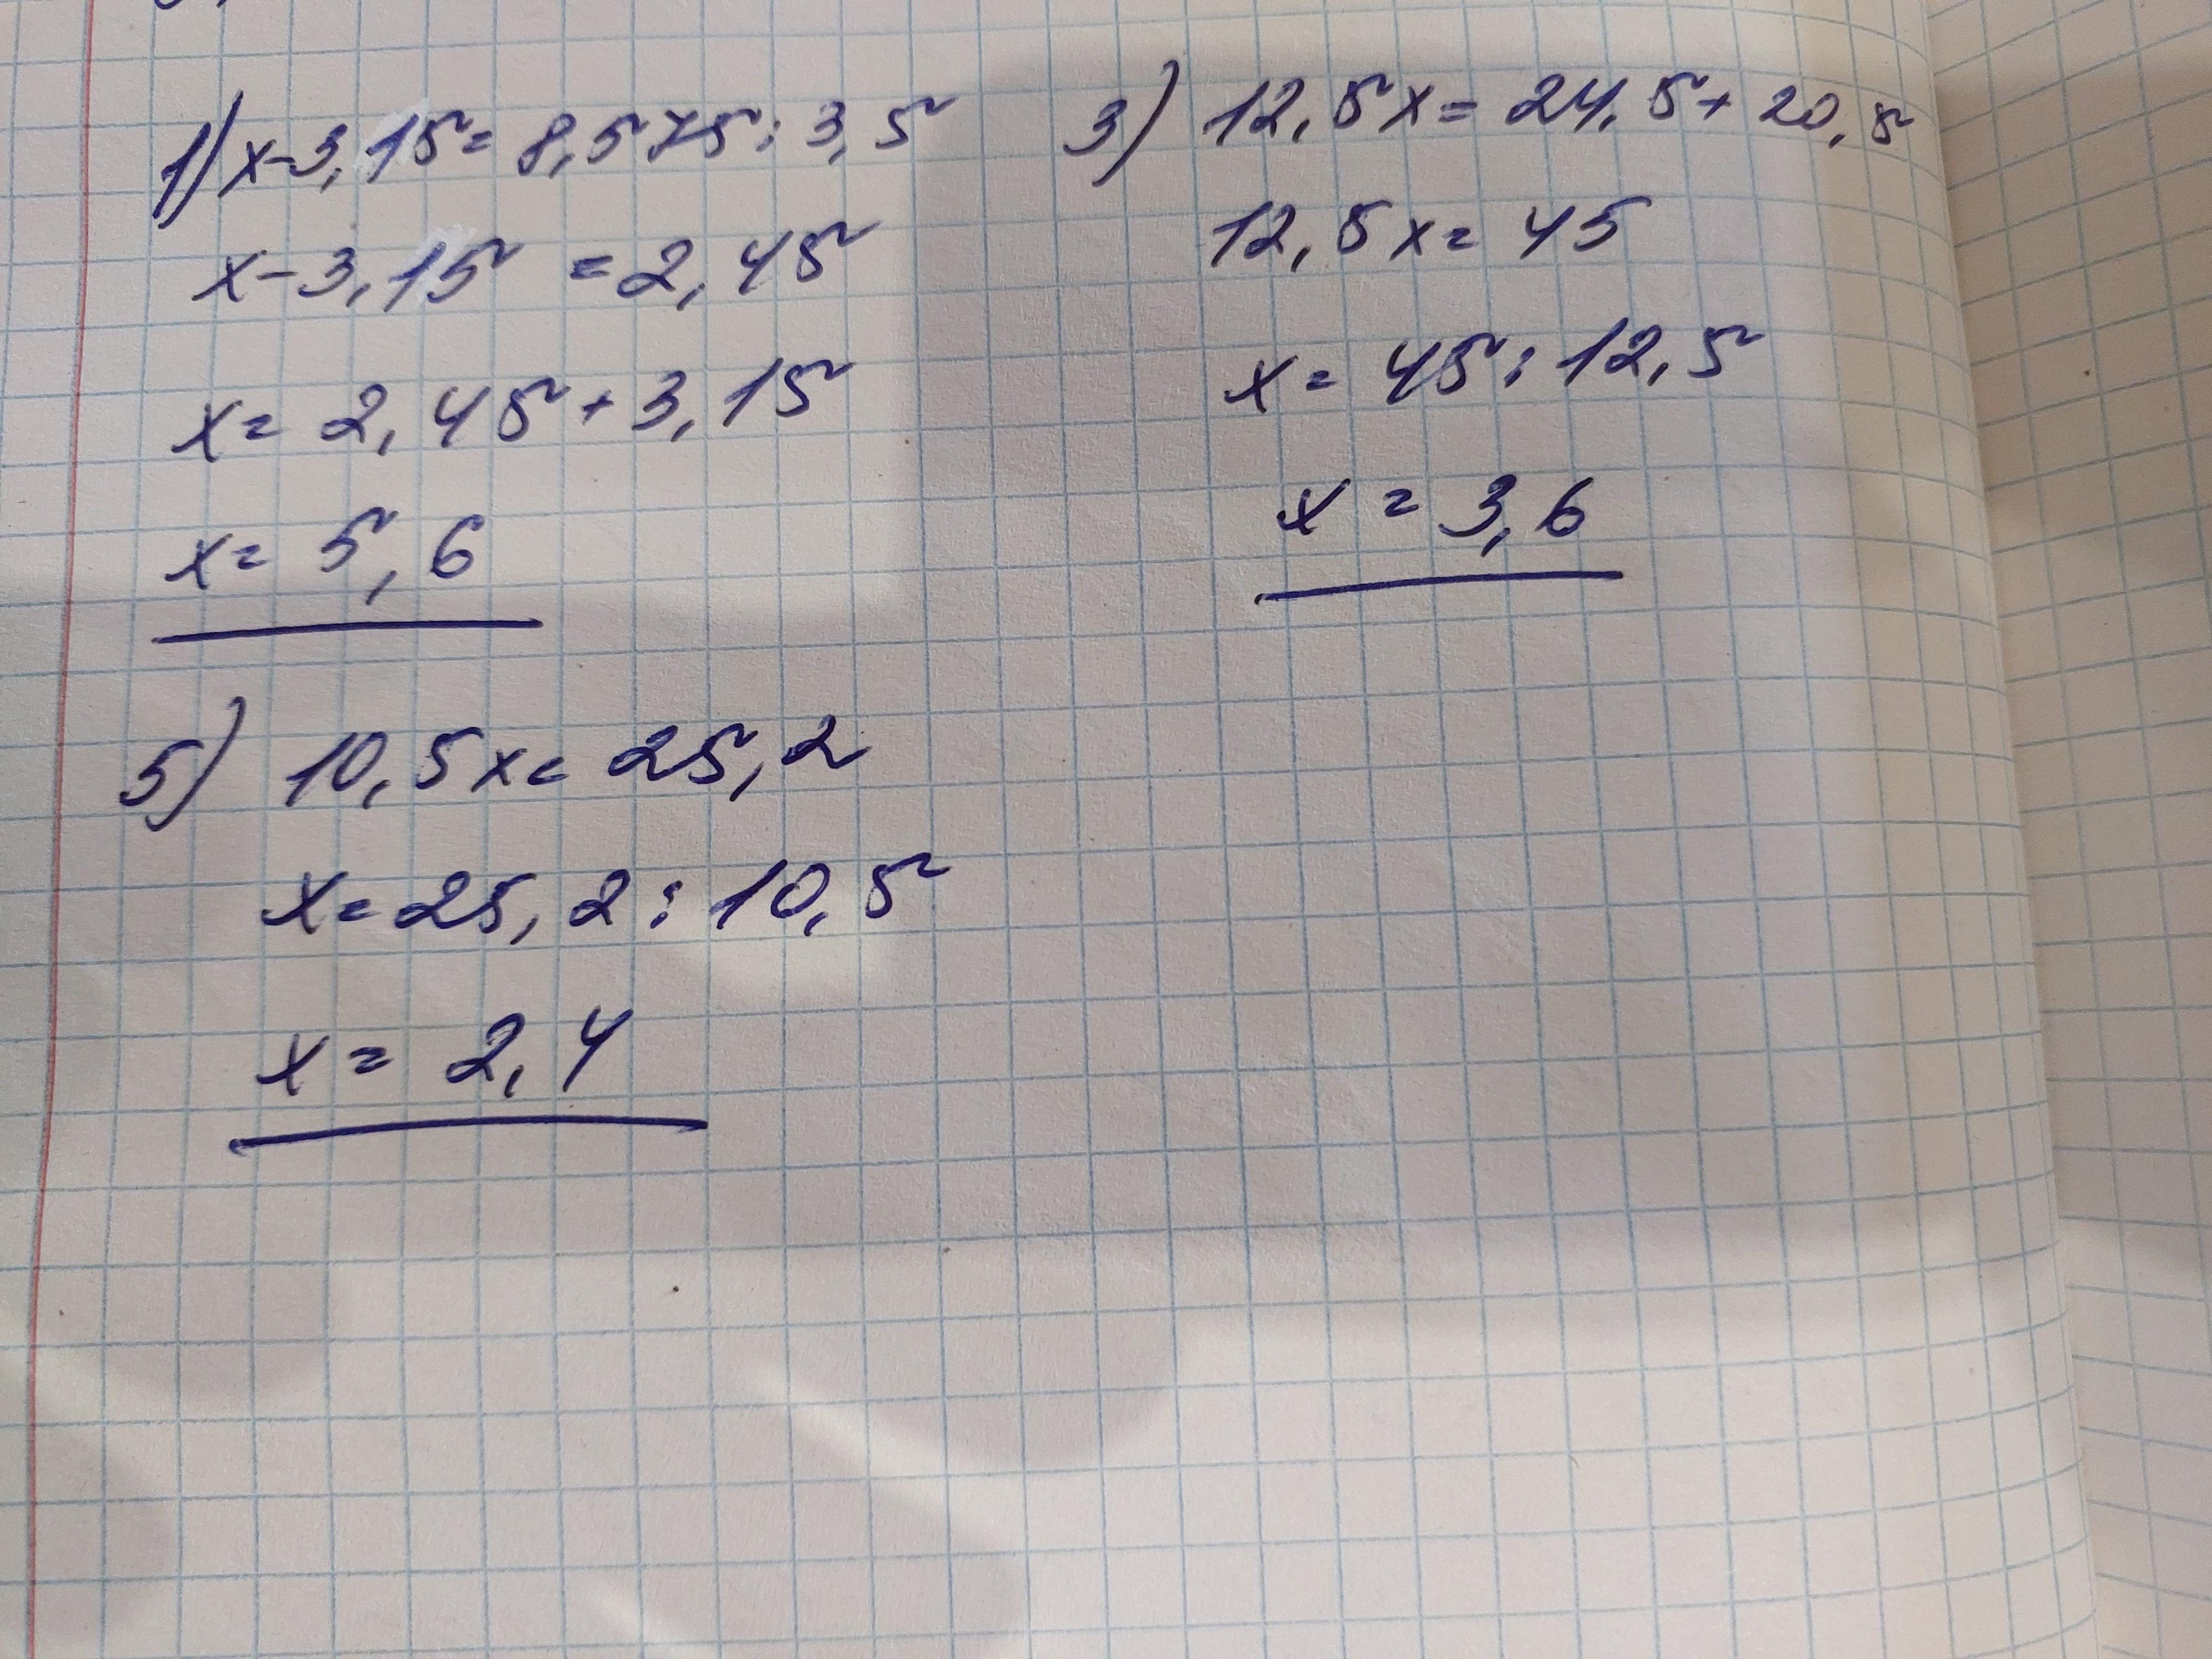 1) x-3,15=8,575:3,5
x-3,15=2,45
x=2,45+3,15
x=5,6
3) 12,5x=24,5+20,5
12,5x=45
x=45:12,5
x=3,6
5) 10,5x=25,2
x=25,2:10,5
x=2,4